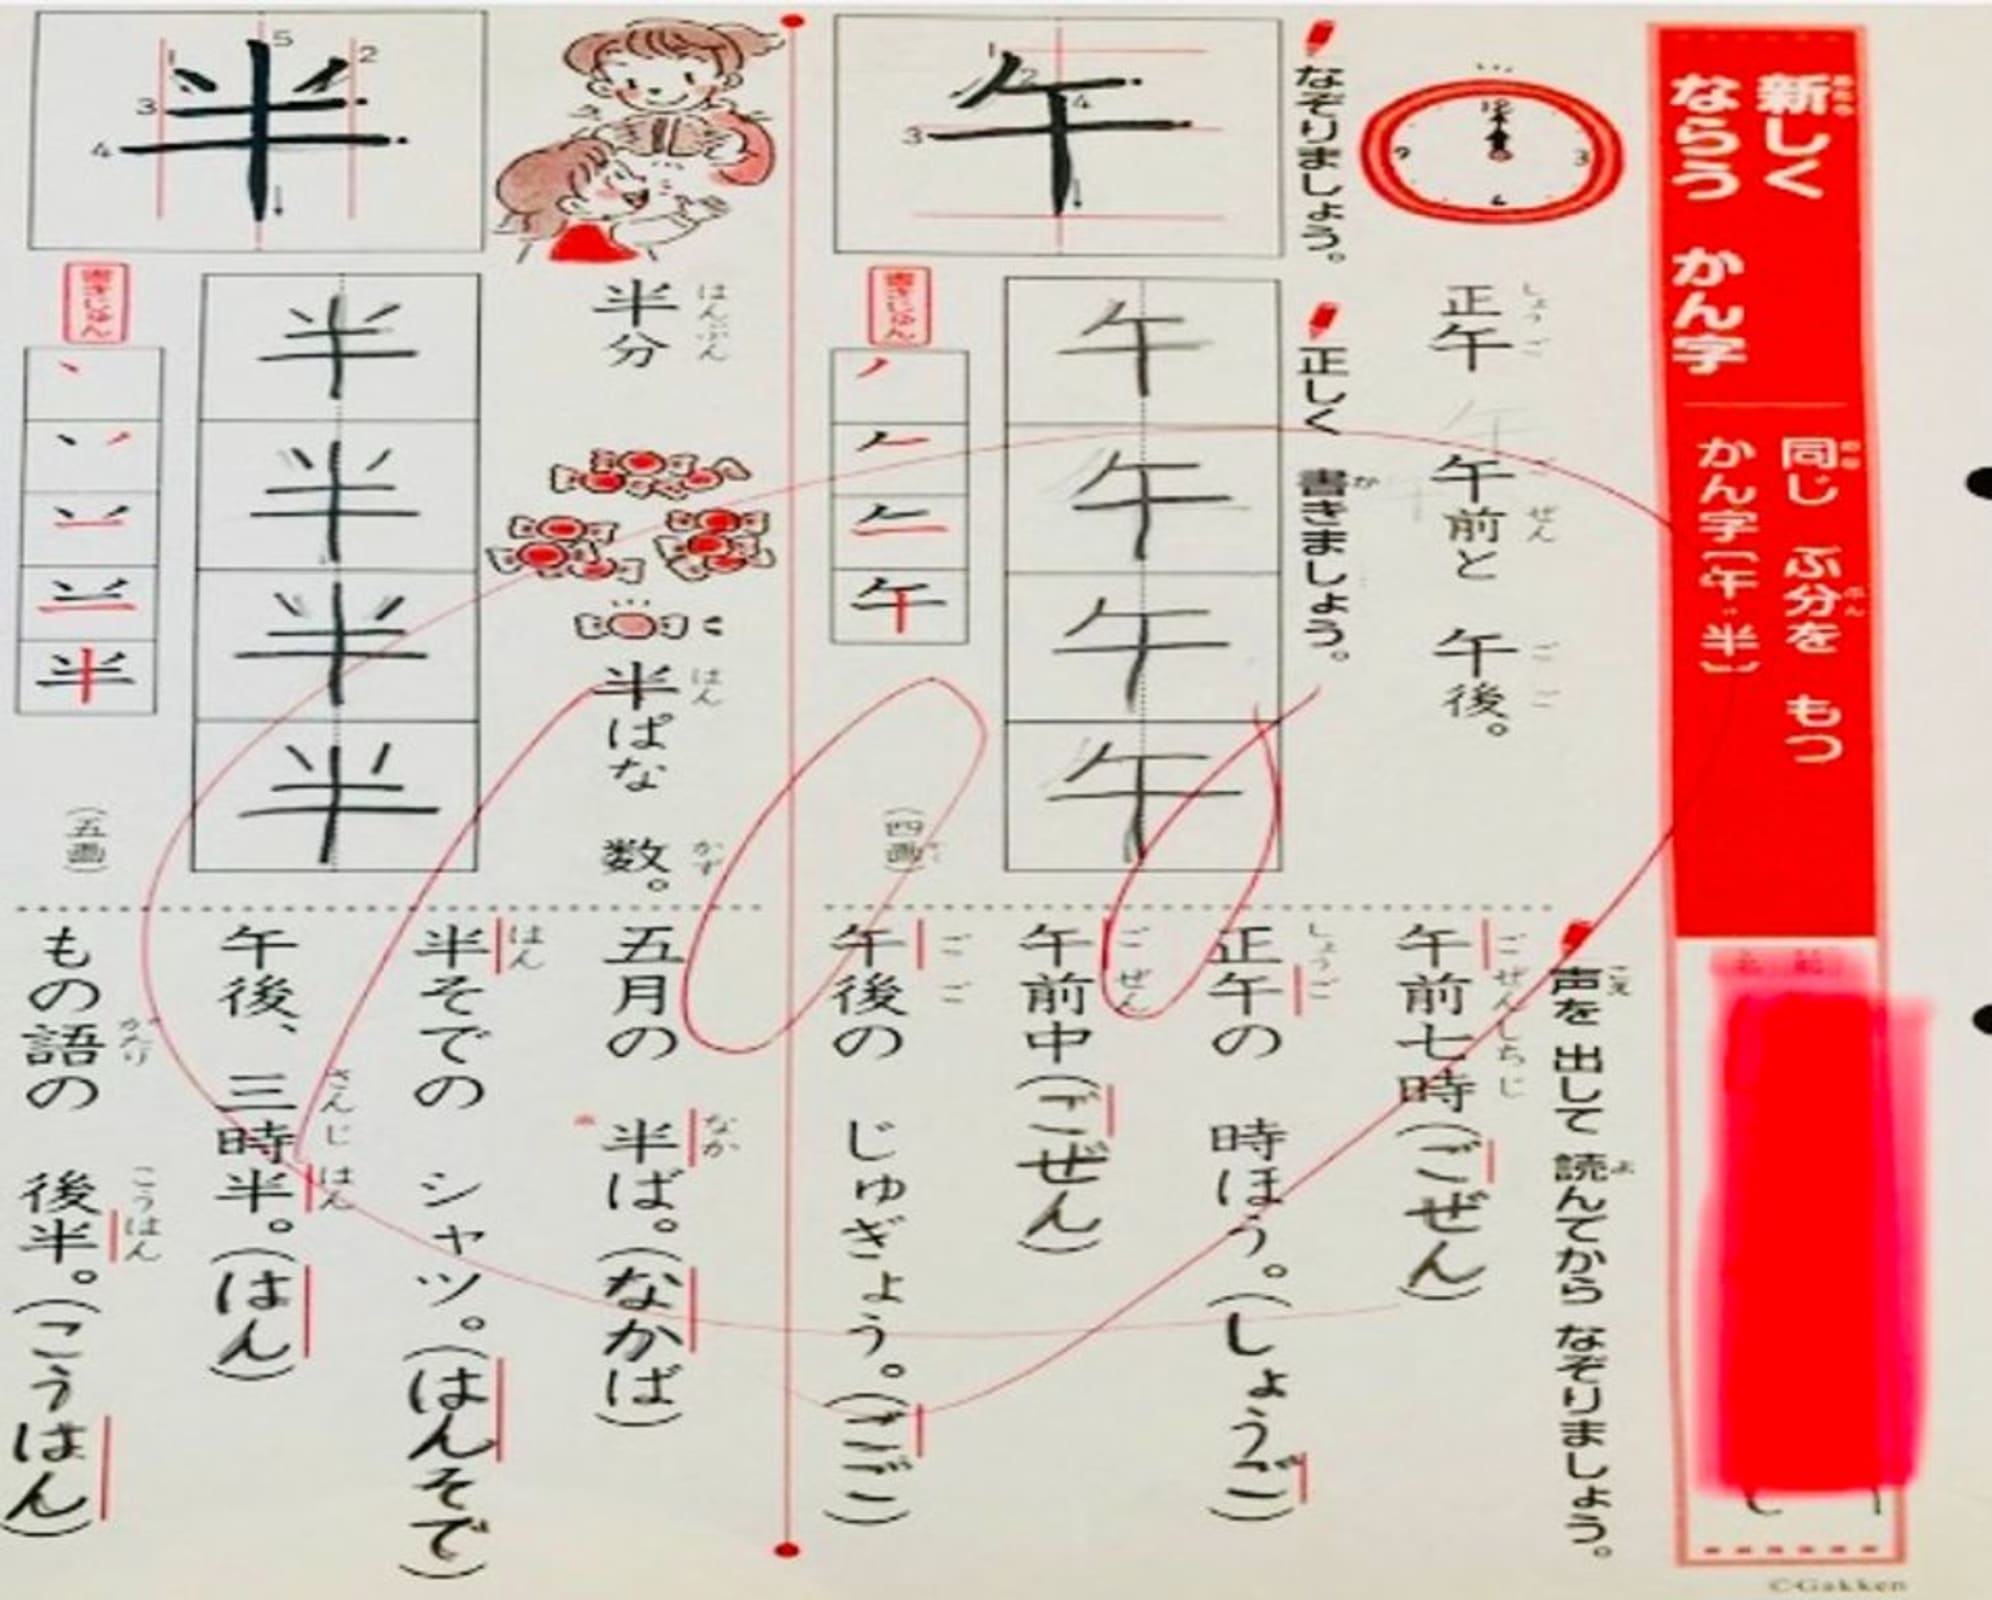 新しく
ならう かん字
同じ ぶ分を もつ
かん字〔午・半〕
正午 午前と 午後。
なぞりましょう。
正しく 書きましょう。
午
午
午
午
午
書きじゅん
午
(四画)
半分
半ぱな 数。
半
半
半
半
半
書きじゅん
半
(五画)
声を 出して 読んでから なぞりましょう。
午前七時(ごぜん)
正午の 時ほう。(しょうご)
午前中(ごぜん)
午後の じゅぎょう。(ごご)
五月の 半ば。(なかば)
半そでの シャツ。(はんそで)
午後、三時半。(はん)
もの語の 後半。(こうはん)
©Gakken